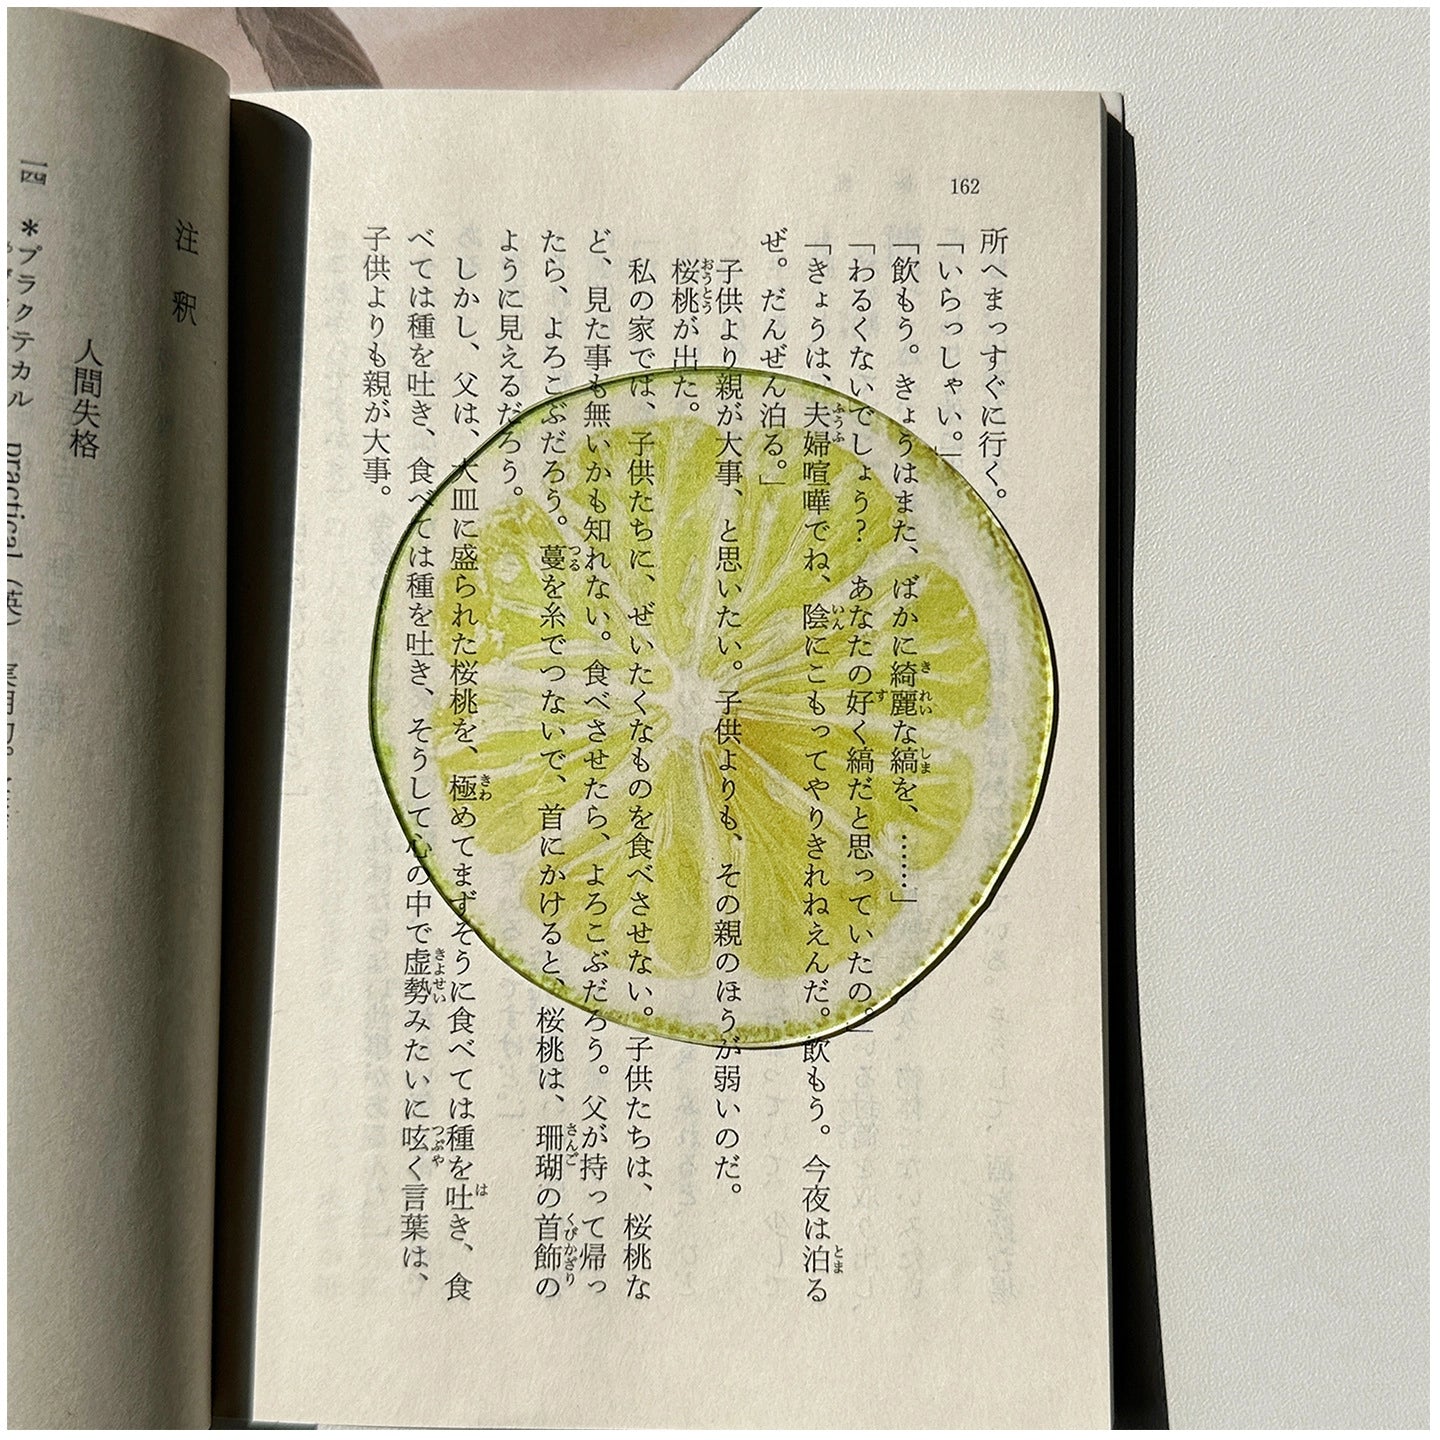 162
所へまっすぐに行く。
「いらっしゃい。」
「飲もう。きょうはまた、ばかに綺麗な縞を、……」
「わるくないでしょう？　あなたの好く縞だと思っていたの。」
「きょうは、夫婦喧嘩でね、陰にこもってやりきれねえんだ。飲もう。今夜は泊る
ぜ。だんぜん泊る。」
子供より親が大事、と思いたい。子供よりも、その親のほうが弱いのだ。
桜桃が出た。
私の家では、子供たちに、ぜいたくなものを食べさせない。子供たちは、桜桃な
ど、見た事も無いかも知れない。食べさせたら、よろこぶだろう。父が持って帰っ
たら、よろこぶだろう。蔓を糸でつないで、首にかけると、桜桃は、珊瑚の首飾の
ように見えるだろう。
しかし、父は、大皿に盛られた桜桃を、極めてまずそうに食べては種を吐き、食
べては種を吐き、食べては種を吐き、そうして心の中で虚勢みたいに呟く言葉は、
子供よりも親が大事。
注釈
人間失格
一四 ＊プラクテカル practical（英）